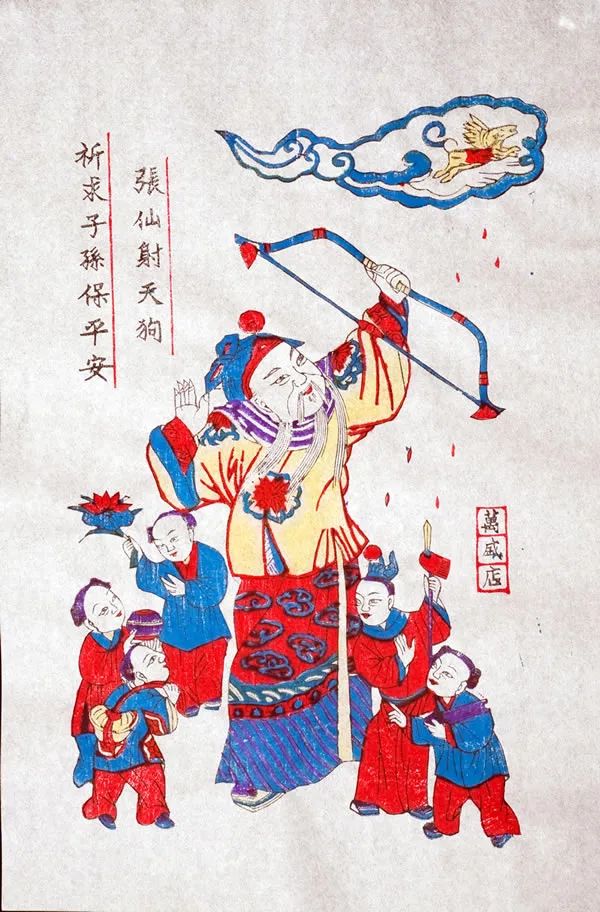 張仙射天狗
祈求子孫保平安
萬威店